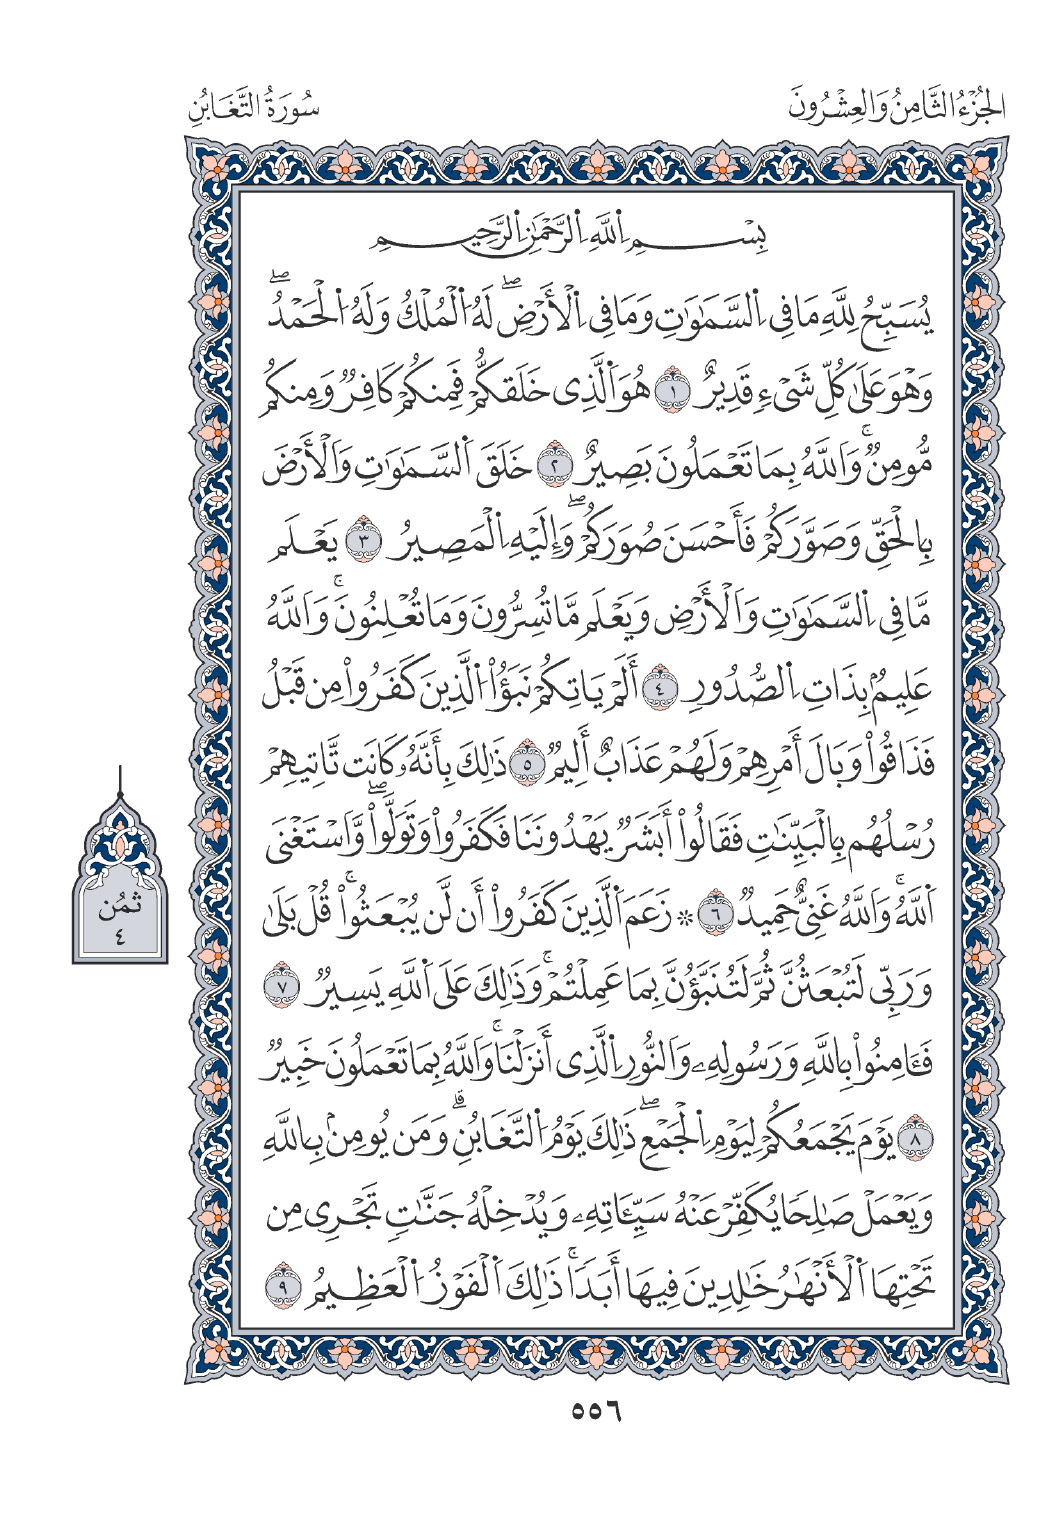 الجُزْءُ الثَّامِنُ وَالعِشْرُونَ
سُورَةُ التَّغَابُنِ
بِسْمِ اِ۬للَّهِ اِ۬لرَّحْمَٰنِ اِ۬لرَّحِيمِ
يُسَبِّحُ لِلَّهِ مَا فِي اِ۬لسَّمَٰوَٰتِ وَمَا فِي اِ۬لْأَرْضِۖ لَهُ اُ۬لْمُلْكُ وَلَهُ اُ۬لْحَمْدُۖ
وَهْوَ عَلَىٰ كُلِّ شَيْءٖ قَدِيرٌ ١ هُوَ اَ۬لَّذِي خَلَقَكُّمْ فَمِنكُمْ كَافِرٞ وَمِنكُم
مُّومِنٞۚ وَاَللَّهُ بِمَا تَعْمَلُونَ بَصِيرٌ ٢ خَلَقَ اَ۬لسَّمَٰوَٰتِ وَاَلْأَرْضَ
بِالْحَقِّ وَصَوَّرَكُمْ فَأَحْسَنَ صُوَرَكُمْۖ وَإِلَيْهِ اِ۬لْمَصِيرُ ٣ يَعْلَم
مَّا فِي اِ۬لسَّمَٰوَٰتِ وَاَلْأَرْضِ وَيَعْلَم مَّا تُسِرُّونَ وَمَا تُعْلِنُونَۚ وَاَللَّهُ
عَلِيمُۢ بِذَاتِ اِ۬لصُّدُورِ ٤ أَلَمْ يَاتِكُمْ نَبَؤُاْ اُ۬لَّذِينَ كَفَرُواْ مِن قَبْلُ
فَذَاقُواْ وَبَالَ أَمْرِهِمْ وَلَهُمْ عَذَابٌ أَلِيمٞ ٥ ذَٰلِكَ بِأَنَّهُۥ كَانَت تَّاتِيهِمْ
رُسْلُهُم بِالْبَيِّنَٰتِ فَقَالُواْ أَبَشَرٞ يَهْدُونَنَا فَكَفَرُواْ وَتَوَلَّواْۖ وَّاسْتَغْنَى
اَ۬للَّهُۚ وَاَللَّهُ غَنِيٌّ حَمِيدٞ ٦ ۞ زَعَمَ اَ۬لَّذِينَ كَفَرُواْ أَن لَّن يُبْعَثُواْۚ قُلْ بَلَىٰ
وَرَبِّي لَتُبْعَثُنَّ ثُمَّ لَتُنَبَّؤُنَّ بِمَا عَمِلْتُمْۚ وَذَٰلِكَ عَلَى اَ۬للَّهِ يَسِيرٞ ٧
فَـَٔامِنُواْ بِاللَّهِ وَرَسُولِهِۦ وَالنُّورِ اِ۬لَّذِي أَنزَلْنَاۚ وَاَللَّهُ بِمَا تَعْمَلُونَ خَبِيرٞ
٨ يَوْمَ يَجْمَعُكُمْ لِيَوْمِ اِ۬لْجَمْعِۖ ذَٰلِكَ يَوْمُ اُ۬لتَّغَابُنِۗ وَمَن يُومِنۢ بِاللَّهِ
وَيَعْمَلْ صَٰلِحٗا يُكَفِّرْ عَنْهُ سَيِّـَٔاتِهِۦ وَيُدْخِلْهُ جَنَّٰتٖ تَجْرِي مِن
تَحْتِهَا اَ۬لْأَنْهَٰرُ خَٰلِدِينَ فِيهَا أَبَدٗاۚ ذَٰلِكَ اَ۬لْفَوْزُ اُ۬لْعَظِيمُ ٩
ثمُن
٤
٥٥٦